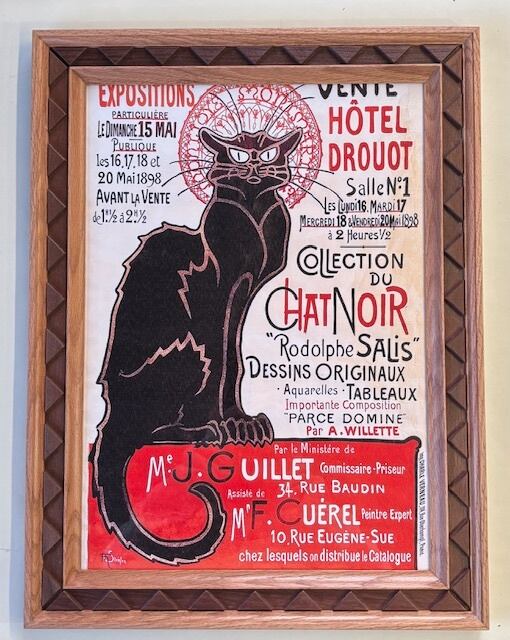 EXPOSITIONS
PARTICULIÈRE
LE DIMANCHE 15 MAI
PUBLIQUE
les 16, 17, 18 et
20 Mai 1898
AVANT LA VENTE
de 1H 1/2 à 2H 1/2
VENTE
HÔTEL
DROUOT
Salle No1
LES LUNDI 16, MARDI 17
MERCREDI 18 & VENDREDI 20 MAI 1898
à 2 Heures 1/2
COLLECTION
DU
CHAT NOIR
"Rodolphe SALIS"
DESSINS ORIGINAUX
· Aquarelles · TABLEAUX
Importante Composition
"PARCE DOMINE"
Par A. WILLETTE
Par le Ministère de
Me. J. GUILLET Commissaire-Priseur
34, RUE BAUDIN
Assisté de
Mr F. CUÉREL Peintre Expert
10, RUE EUGÈNE-SUE
chez lesquels on distribue le Catalogue